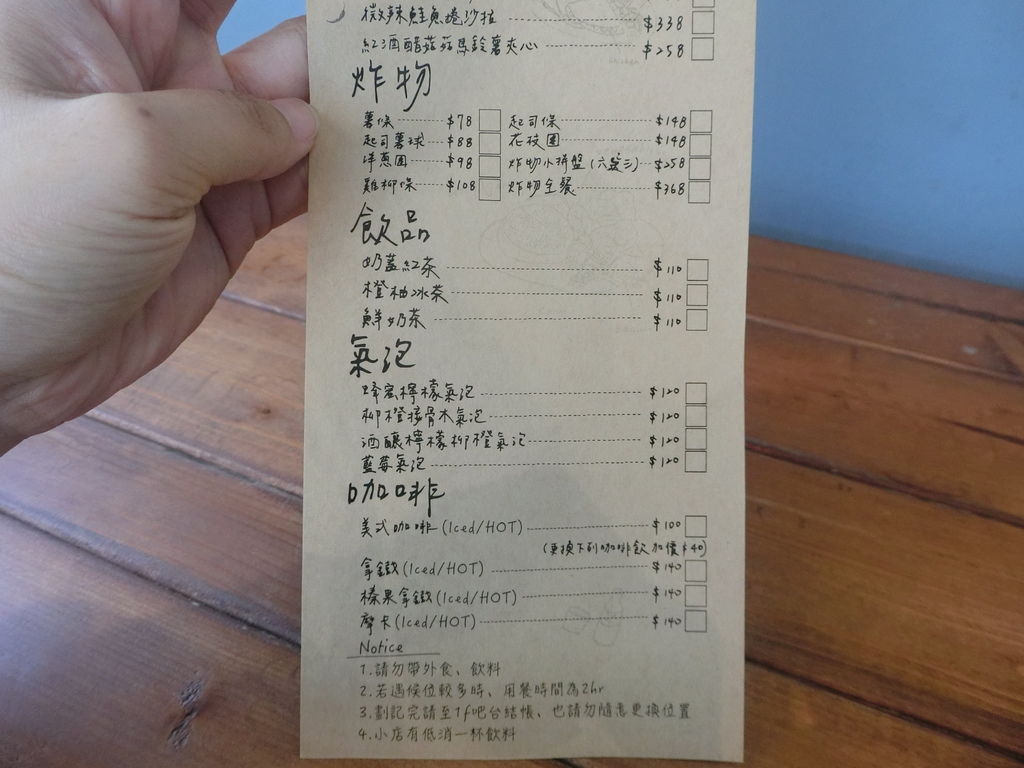 微辣鮭魚捲沙拉 $338
紅酒醋菇菇馬鈴薯夾心 $258
炸物
薯條 $78 起司條 $148
起司薯球 $88 花枝圈 $148
洋蔥圈 $98 炸物小拼盤(六選三) $258
雞柳條 $108 炸物全餐 $368
飲品
奶蓋紅茶 $110
橙柚冰茶 $110
鮮奶茶 $110
氣泡
蜂蜜檸檬氣泡 $120
柳橙接骨木氣泡 $120
酒釀檸檬柳橙氣泡 $120
藍莓氣泡 $120
咖啡
美式咖啡(Iced/HOT) $100
(更換下列咖啡飲加價$40)
拿鐵(Iced/HOT) $140
榛果拿鐵(Iced/HOT) $140
摩卡(Iced/HOT) $140
Notice
1.請勿帶外食、飲料
2.若遇候位較多時、用餐時間為2hr
3.劃記完請至1f吧台結帳、也請勿隨意更換位置
4.小店有低消一杯飲料